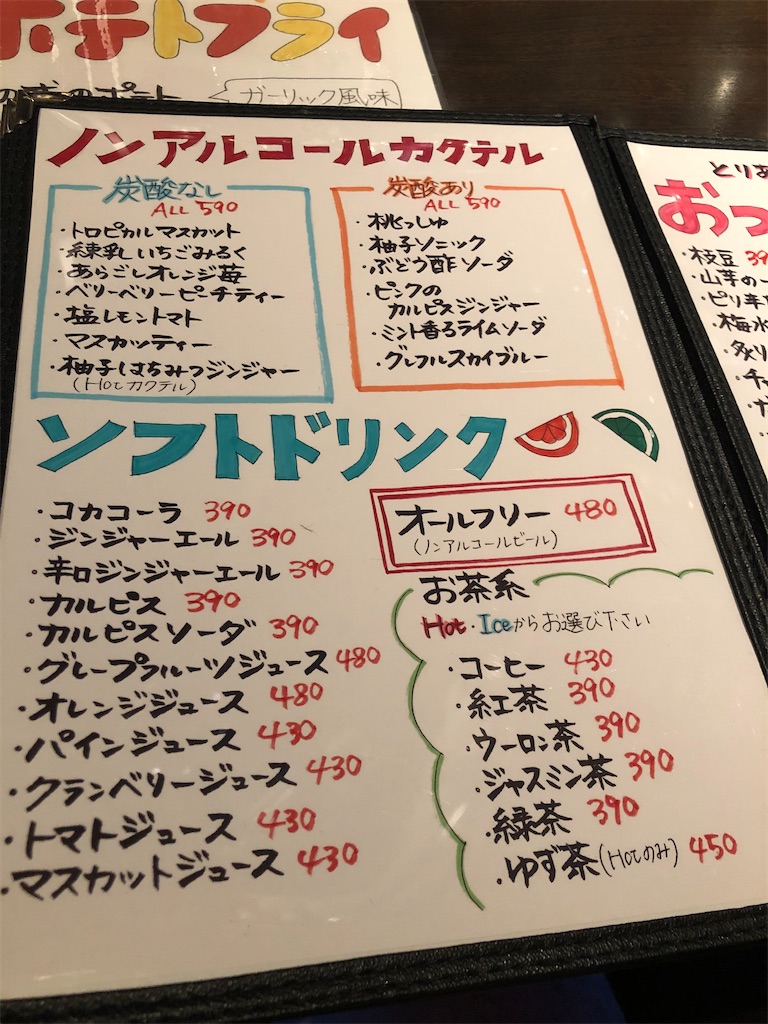 ポテトフライ
ガーリック風味
ノンアルコールカクテル
炭酸なし
ALL 590
・トロピカルマスカット
・練乳いちごみるく
・あらごしオレンジ苺
・ベリーベリーピーチティー
・塩レモントマト
・マスカッティー
・柚子はちみつジンジャー
(Hotカクテル)
炭酸あり
ALL 590
・桃っしゅ
・柚子ソニック
・ぶどう酢ソーダ
・ピンクの
カルピスジンジャー
・ミント香るライムソーダ
・グレフルスカイブルー
ソフトドリンク
・コカコーラ 390
・ジンジャーエール 390
・辛口ジンジャーエール 390
・カルピス 390
・カルピスソーダ 390
・グレープフルーツジュース 480
・オレンジジュース 480
・パインジュース 430
・クランベリージュース 430
・トマトジュース 430
・マスカットジュース 430
オールフリー 480
(ノンアルコールビール)
お茶系
Hot・Iceからお選び下さい
・コーヒー 430
・紅茶 390
・ウーロン茶 390
・ジャスミン茶 390
・緑茶 390
・ゆず茶(Hotのみ) 450
とりあ
おつ
・枝豆 39
・山芋の
・ピリ辛
・梅水
・炙り
・チャ